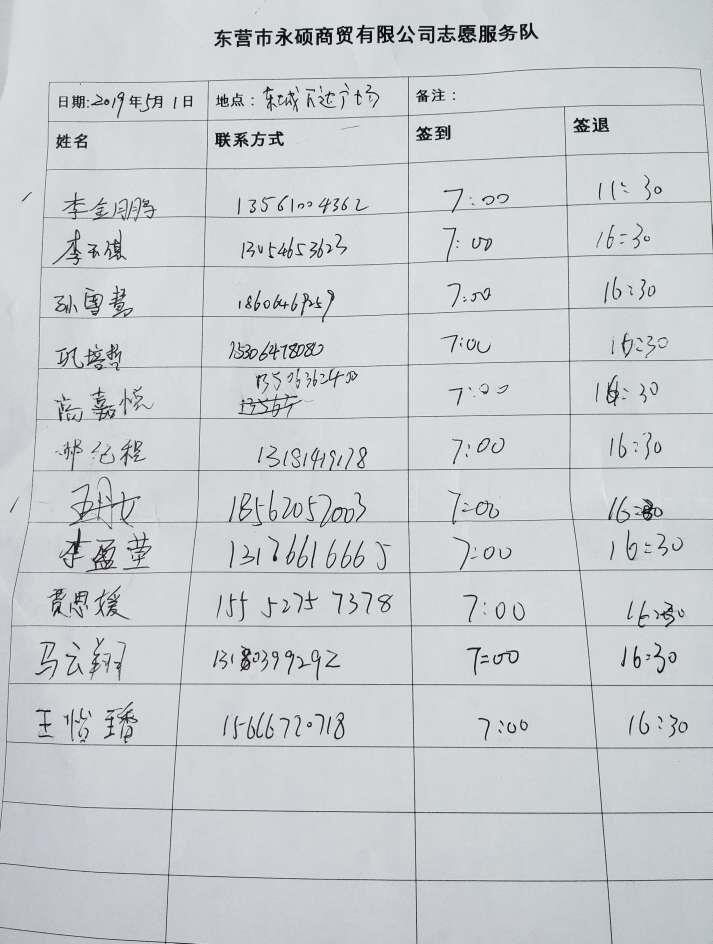 东营市永硕商贸有限公司志愿服务队
日期:2019年5月1日 地点：东城万达广场 备注：
姓名 联系方式 签到 签退
李金鹏 13561004362 7:00 11:30
李 7:00 16:30
孙雪 7:00 16:30
培哲 15306478080 7:00 16:30
高嘉悦 13506362400 7:00 16:30
纪程 13181419178 7:00 16:30
18562052003 7:00 16:30
李盈莹 13176616665 7:00 16:30
费思媛 155 5275 7378 7:00 16:30
马云翔 13180399292 7:00 16:30
王怡璠 15666720718 7:00 16:30